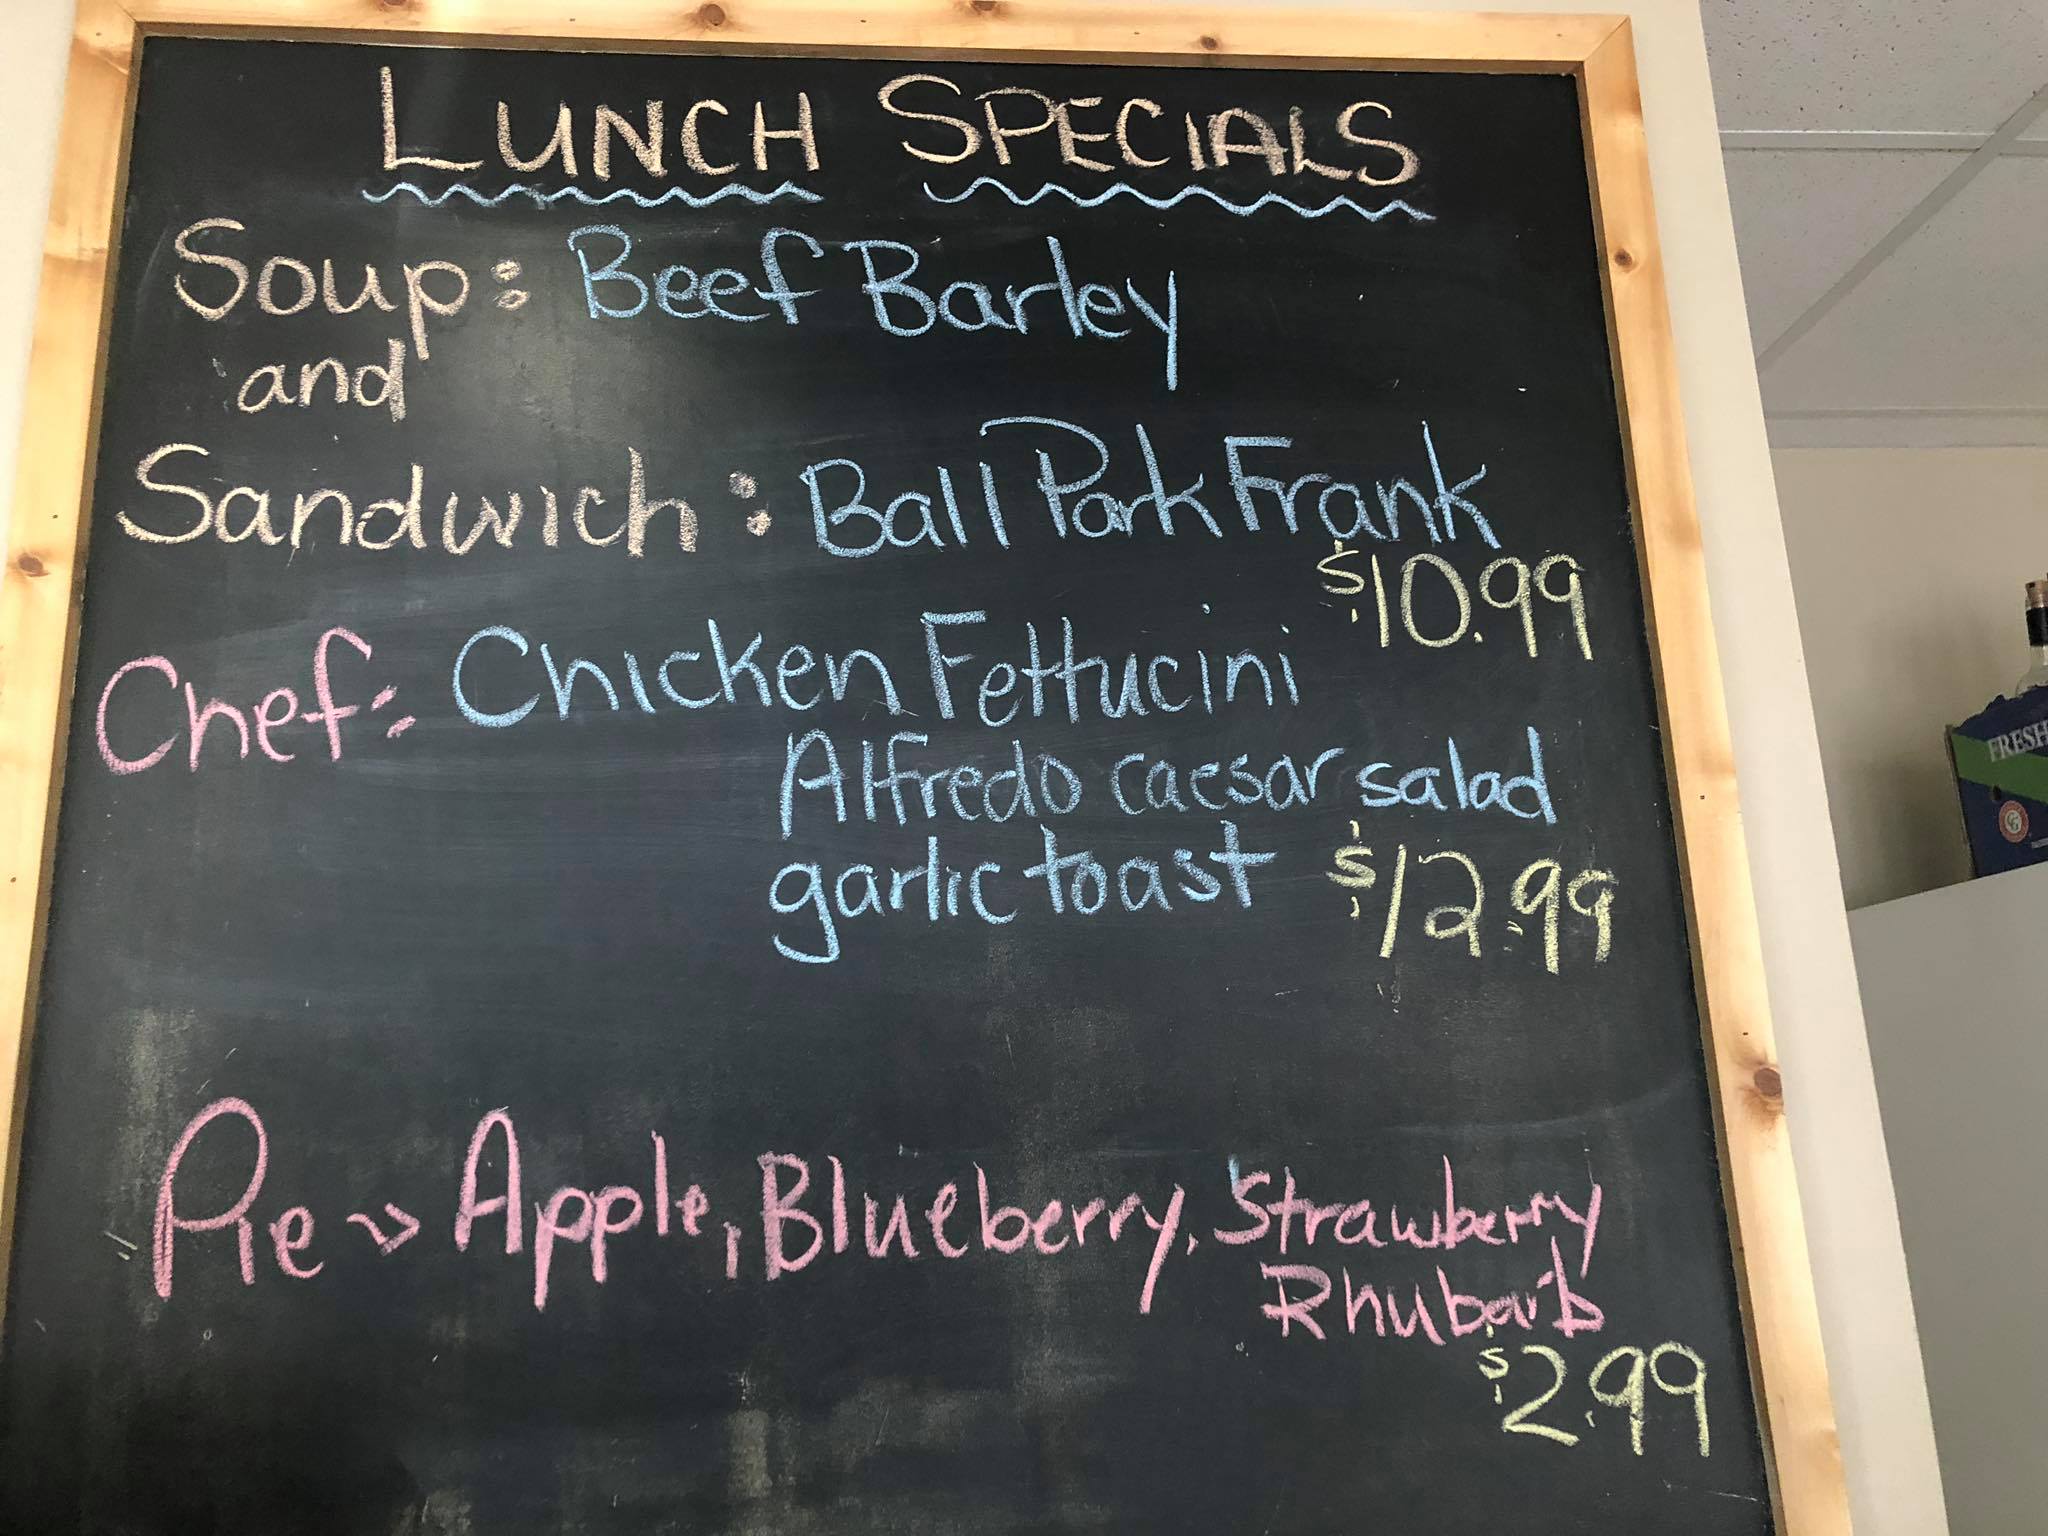 LUNCH SPECIALS
Soup: Beef Barley
and
Sandwich: Ball Park Frank
$10.99
Chef: Chicken Fettucini
Alfredo caesar salad
garlic toast $12.99
Pie >> Apple, Blueberry, Strawberry
Rhubarb
$2.99
FRESH